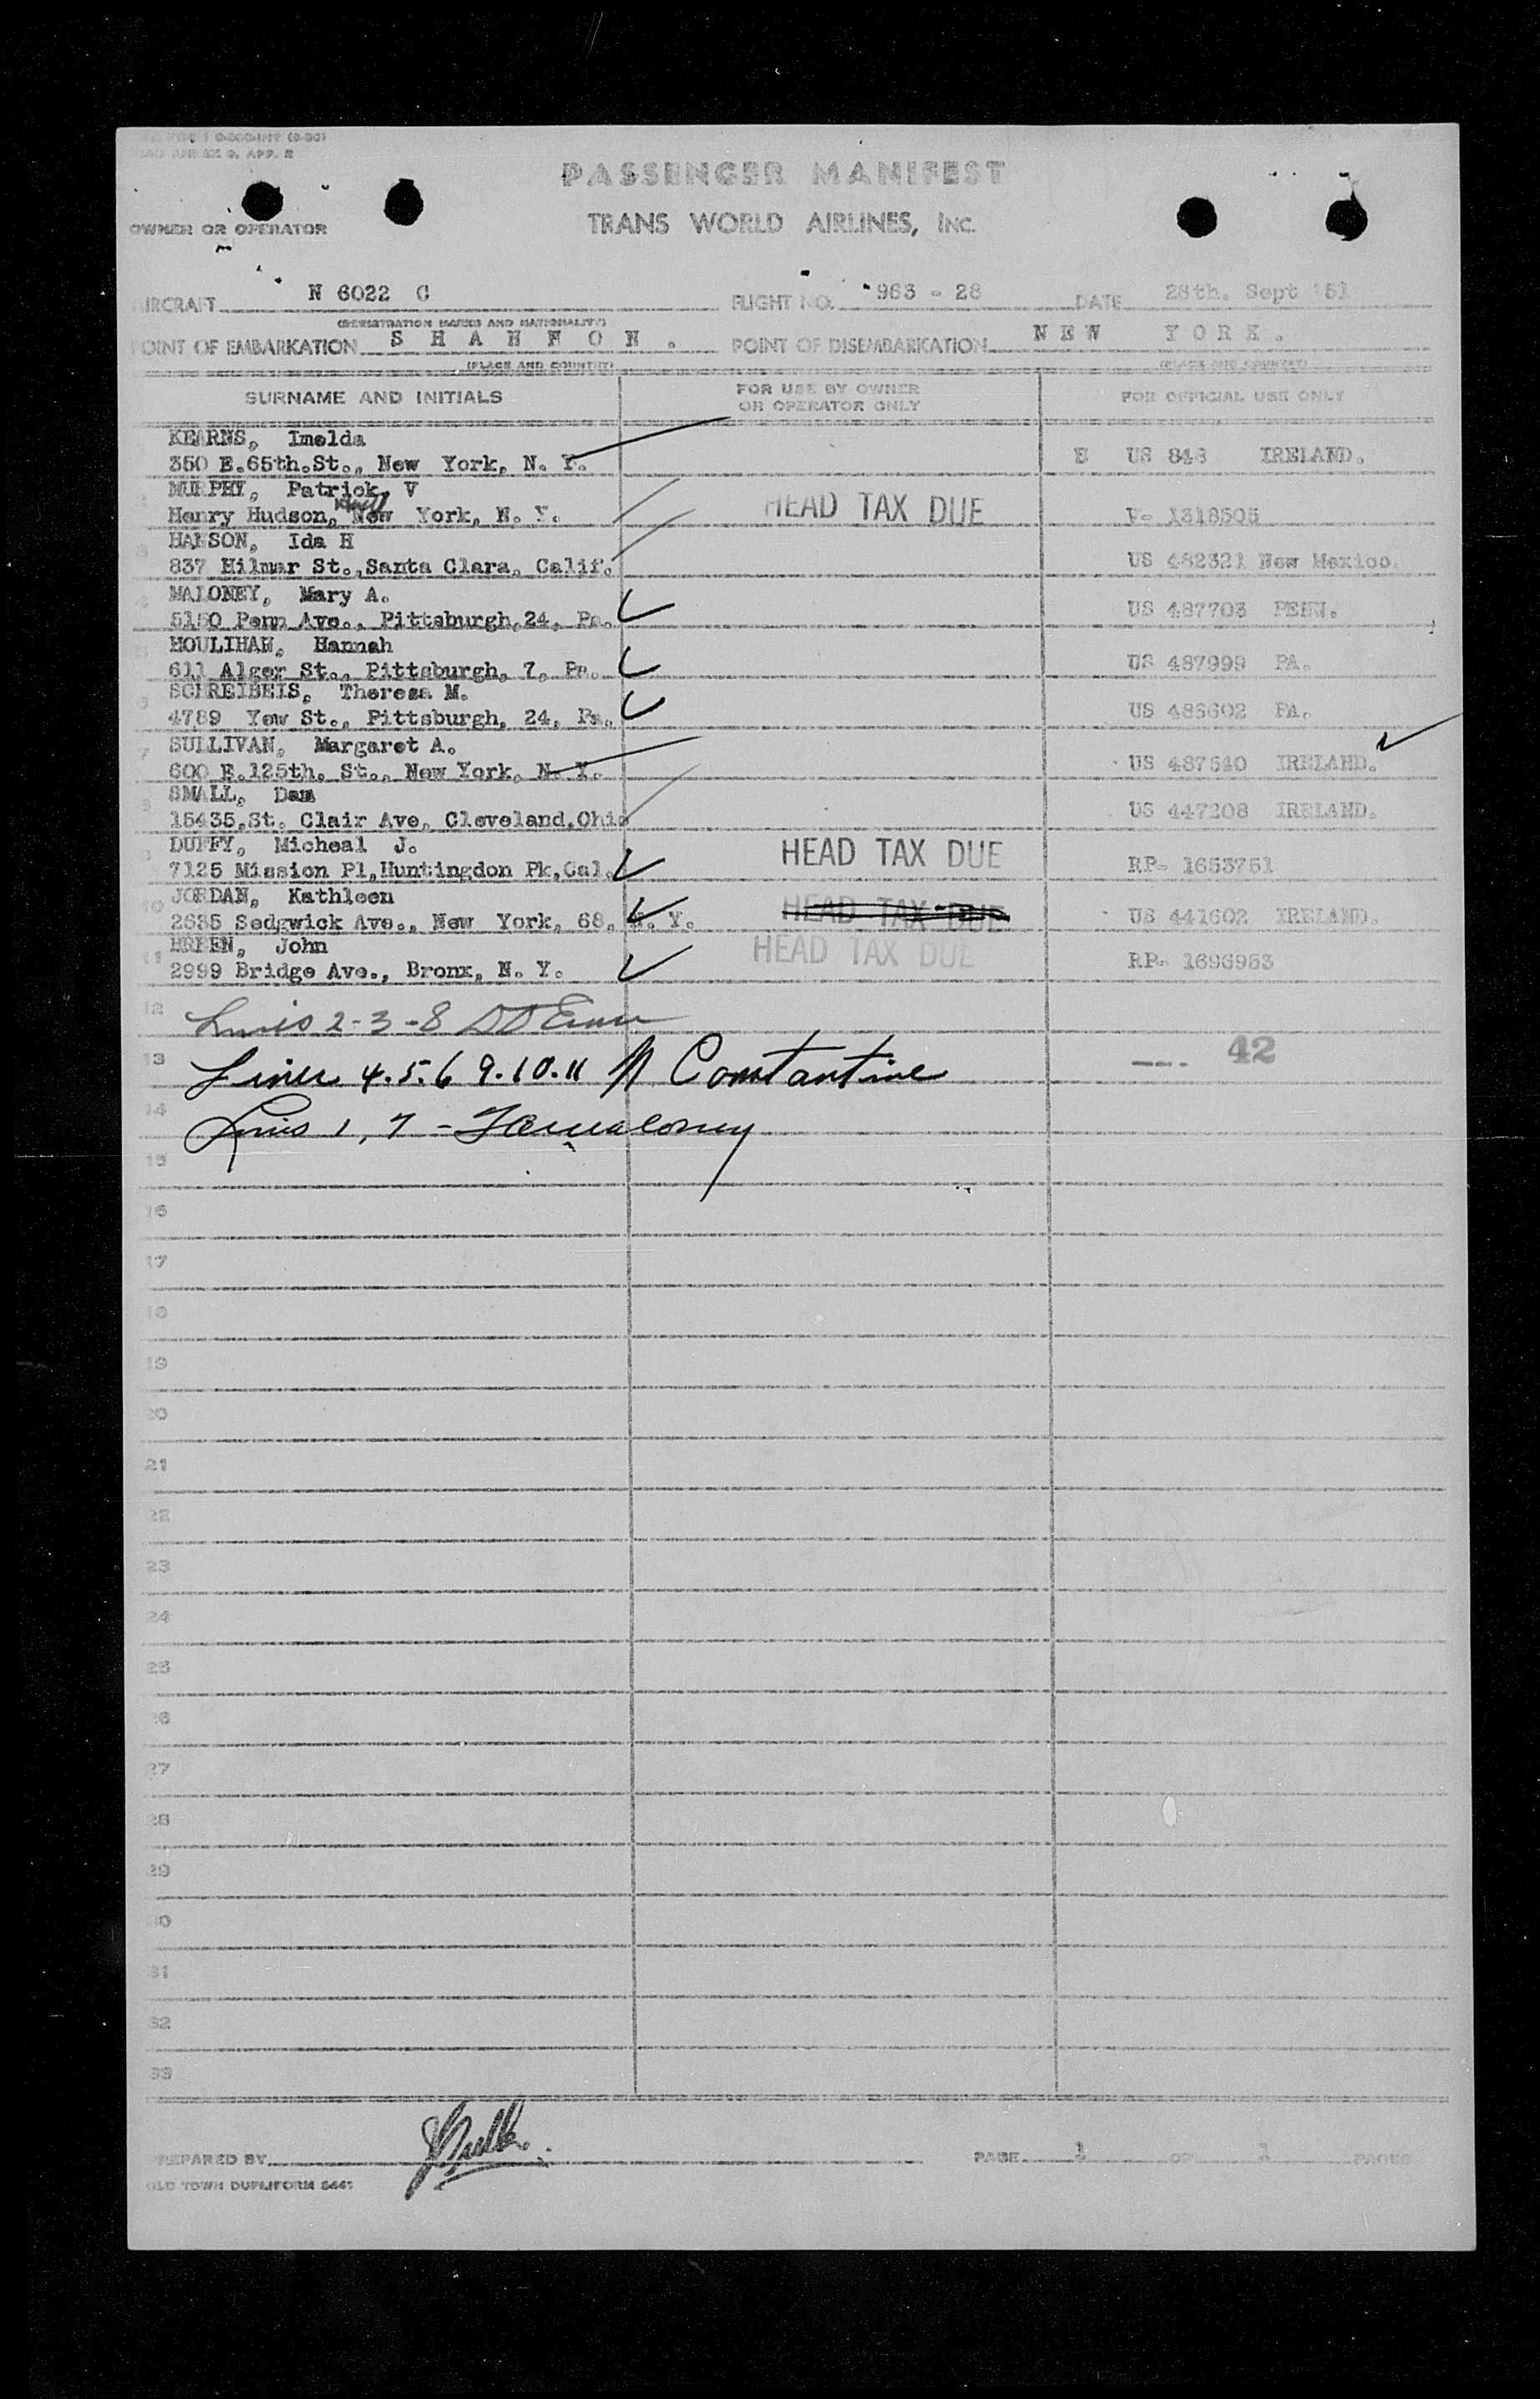 PASSENGER MANIFEST
TRANS WORLD AIRLINES, INC.
OWNER OR OPERATOR
AIRCRAFT N 6022 C FLIGHT NO. 963 - 28 DATE 28th. Sept '51
(REGISTRATION MARKS AND NATIONALITY)
POINT OF EMBARKATION S H A N N O N . POINT OF DISEMBARKATION N E W Y O R K .
(PLACE AND COUNTRY) (PLACE AND COUNTRY)
SURNAME AND INITIALS FOR USE BY OWNER OR OPERATOR ONLY FOR OFFICIAL USE ONLY
KEARNS, Imelda
350 E.65th.St., New York, N. Y. E US 848 IRELAND.
MURPHY, Patrick, V
Henry Hudson, Hotel New York, N. Y. HEAD TAX DUE V- 1318505
3 HANSON, Ida H
837 Hilmar St.,Santa Clara, Calif. US 482321 New Mexico.
4 MALONEY, Mary A.
5150 Penn Ave., Pittsburgh,24, Pa. US 487703 PENN.
5 HOULIHAN, Hannah
611 Alger St., Pittsburgh, 7, Pa. US 487999 PA.
6 SCHREIBEIS, Theresa M.
4789 Yew St., Pittsburgh, 24, Pa. US 486602 PA.
7 SULLIVAN, Margaret A.
600 E.125th. St., New York, N. Y. US 487540 IRELAND.
8 SMALL, Dam
15435,St. Clair Ave, Cleveland,Ohio US 447208 IRELAND.
9 DUFFY, Micheal J.
7125 Mission Pl,Huntingdon Pk,Cal. HEAD TAX DUE RP- 1653751
10 JORDAN, Kathleen
2635 Sedgwick Ave., New York, 68, N. Y. HEAD TAX DUE US 441602 IRELAND.
11 BREEN, John
2999 Bridge Ave., Bronx, N. Y. HEAD TAX DUE RP- 1696953
12 Lines 2-3-8
13 Lines 4.5.6 9.10.11 N Constantine --- 42
14 Lines 1, 7 -
15
16
17
18
19
20
21
22
23
24
25
26
27
28
29
30
31
32
33
PREPARED BY PAGE 1 OF 1 PAGES
OLD TOWN DUPLIFORM